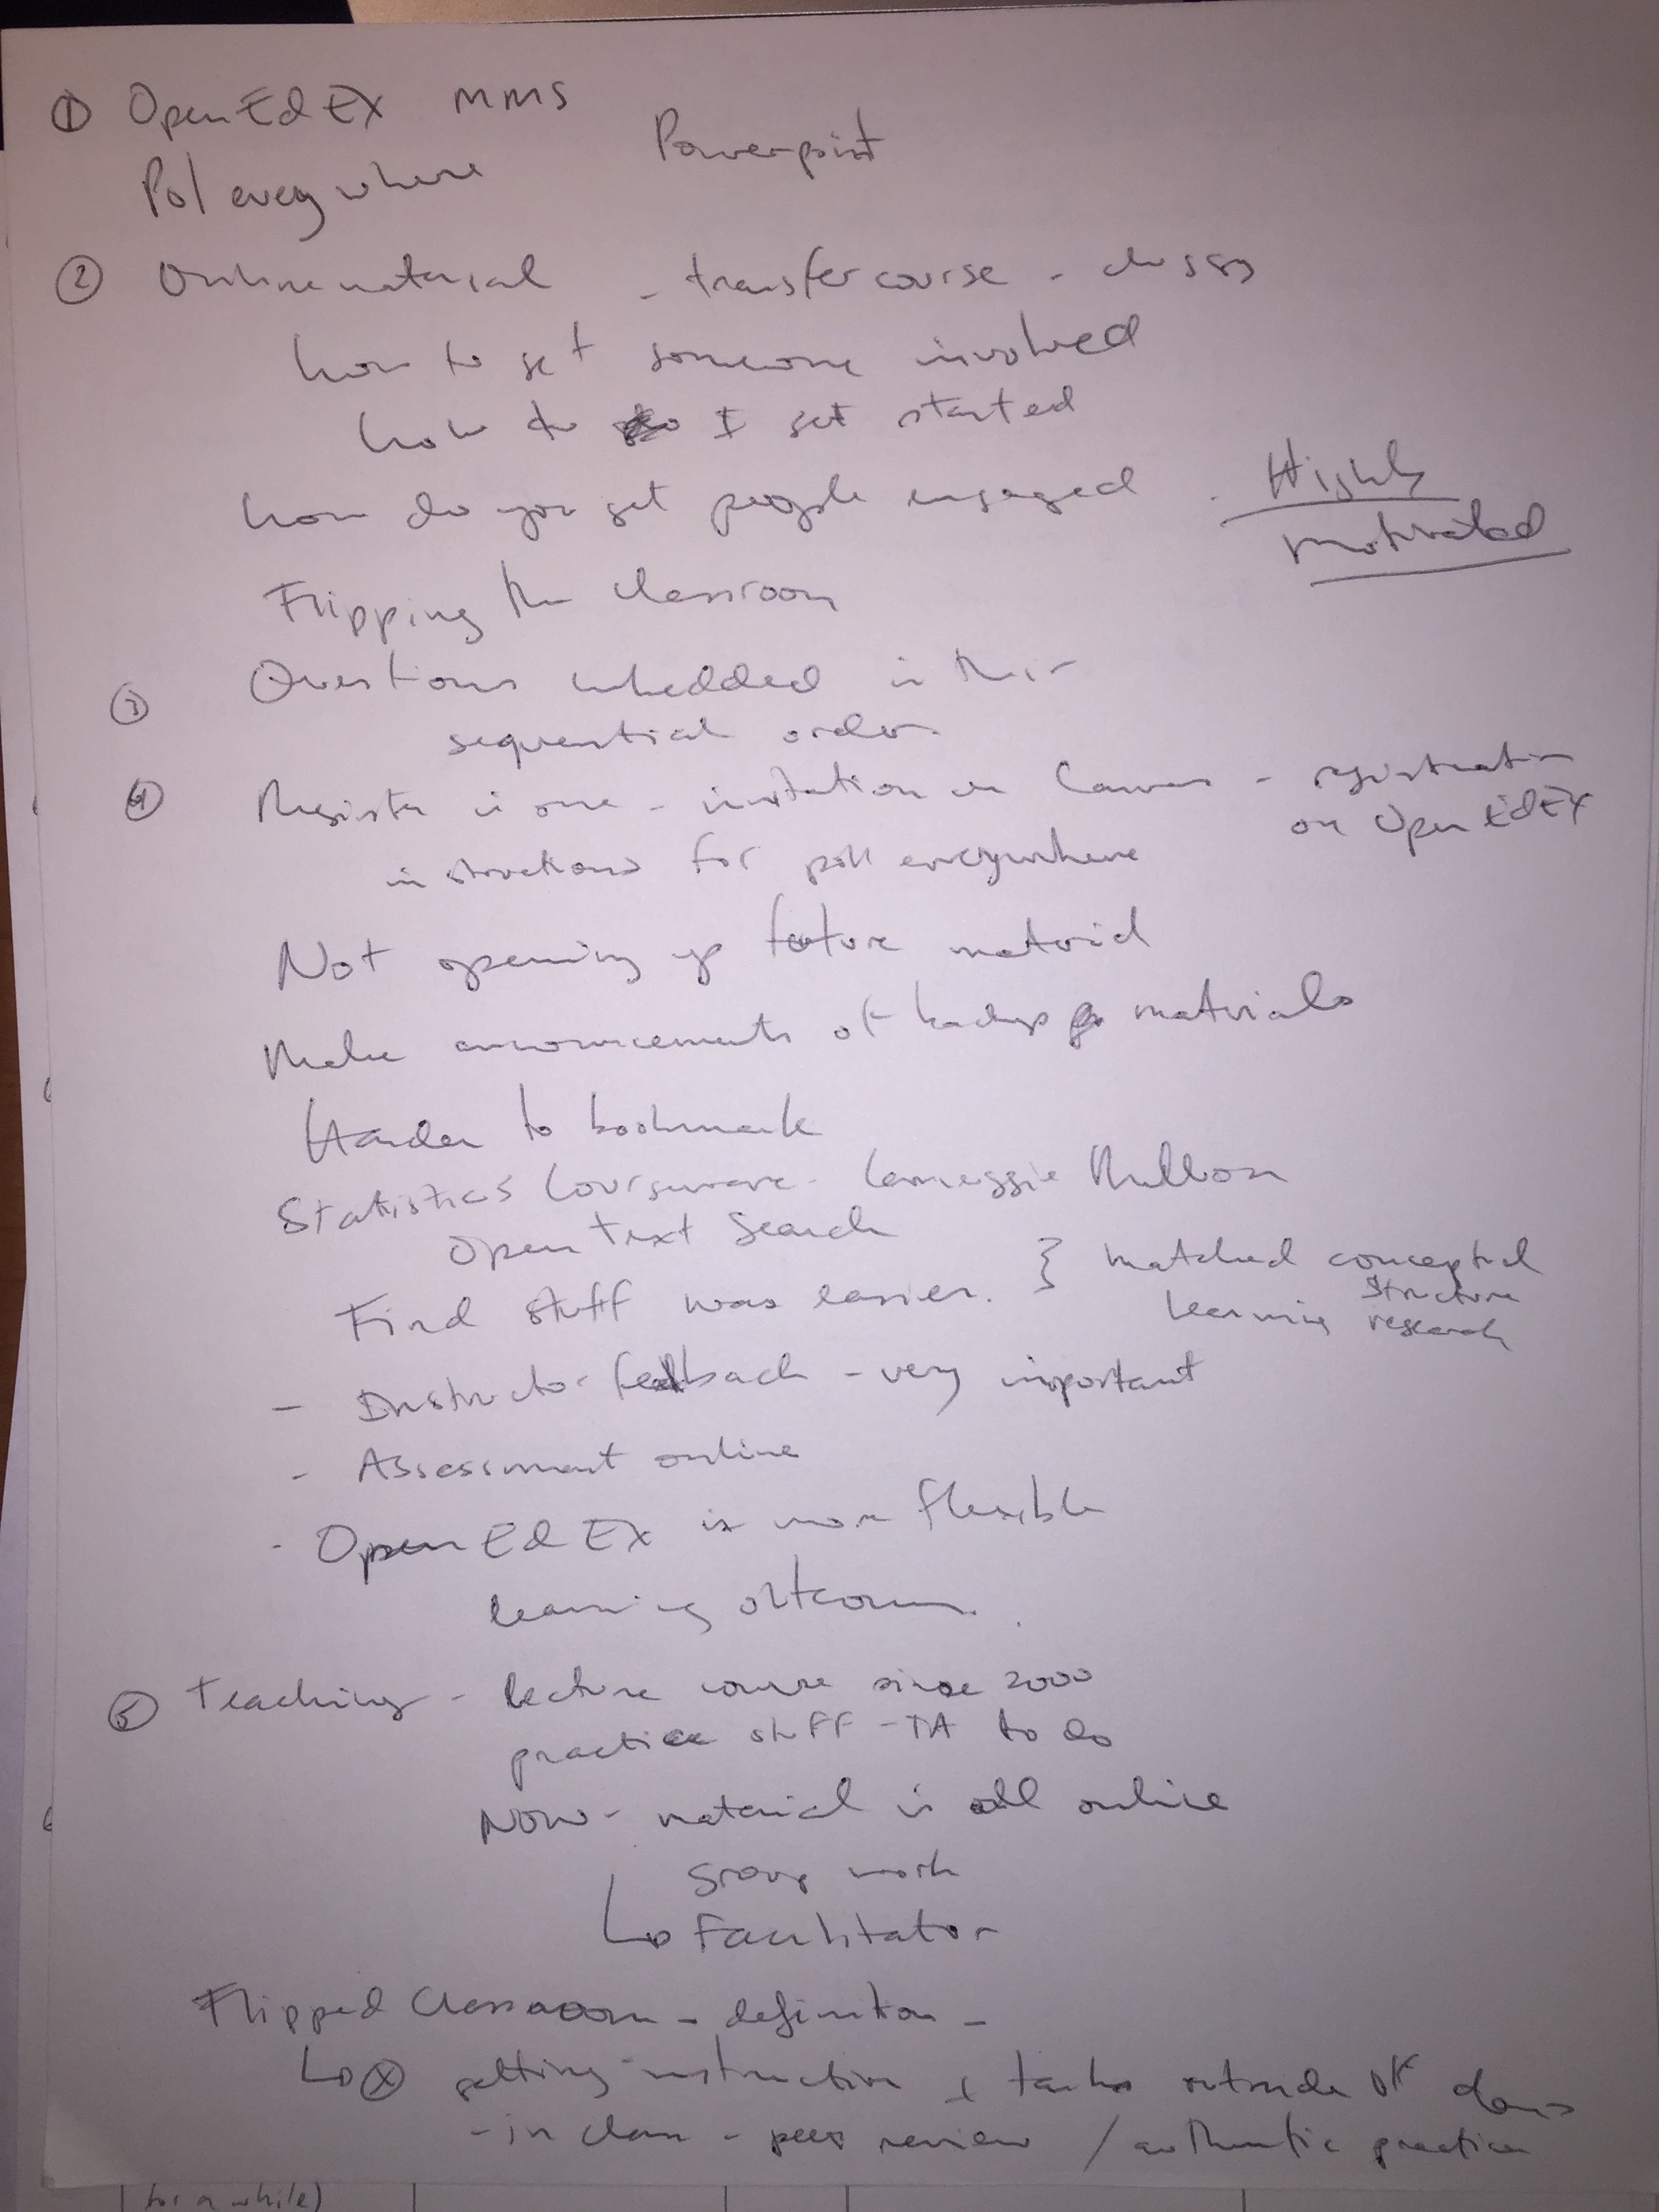 ① OpenEdEX MMS
Powerpoint
Pol everywhere
② Online material - transfer course -
how to get someone involved
how to I get started
how do you get people engaged - Highly
motivated
Flipping the classroom
③ Questions embedded in their
sequential order
④ Register is one - invitation on Canvas - registration
on Open EdEX
instructions for poll everywhere
Not opening up future material
Make announcements of backup materials
Harder to bookmark
Statistics Courseware - Carneggie Mellon
Open Text Search
Find stuff was easier. } matched conceptual
structure
learning research
- Instructor feedback - very important
- Assessment online
- Open Ed EX is more flexible
learning outcomes.
⑤ Teaching - lecture course since 2000
practice stuff - TA to do
Now - material is all online
group work
Facilitator
Flipped Classroom - definition -
putting instruction + tasks outside of class
- in class - peer review / authentic practice
for a while)